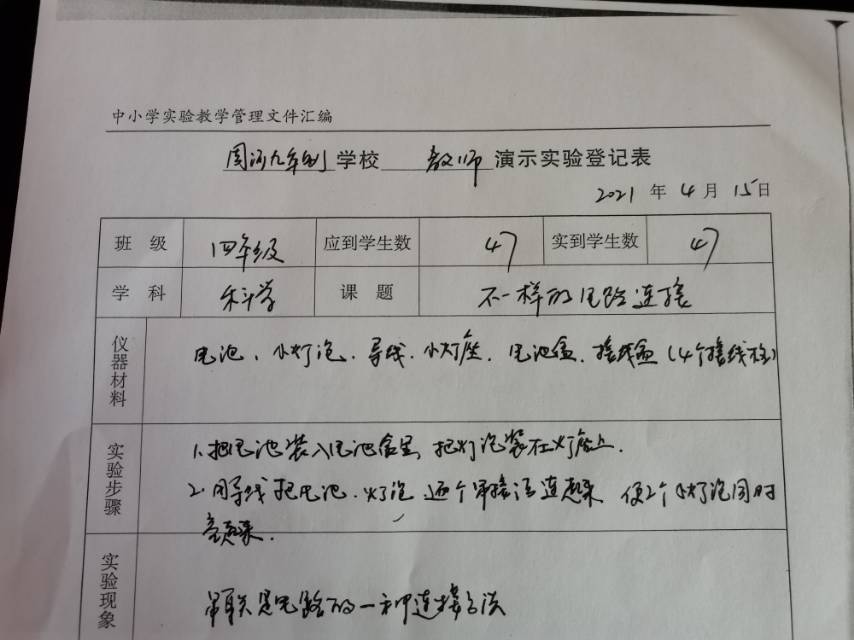 中小学实验教学管理文件汇编
周河九年制学校 教师 演示实验登记表
2021 年 4 月 15日
班 级 四年级 应到学生数 47 实到学生数 47
学 科 科学 课 题 不一样的电路连接
仪器材料 电池、小灯泡、导线、小灯座、电池盒、接线盒(4个接线柱)
实验步骤
1.把电池装入电池盒里,把灯泡装在灯座上.
2.用导线把电池、灯泡逐个串接法连起来 使2个小灯泡同时
亮起来.
实验现象 串联是电路的一种连接方法